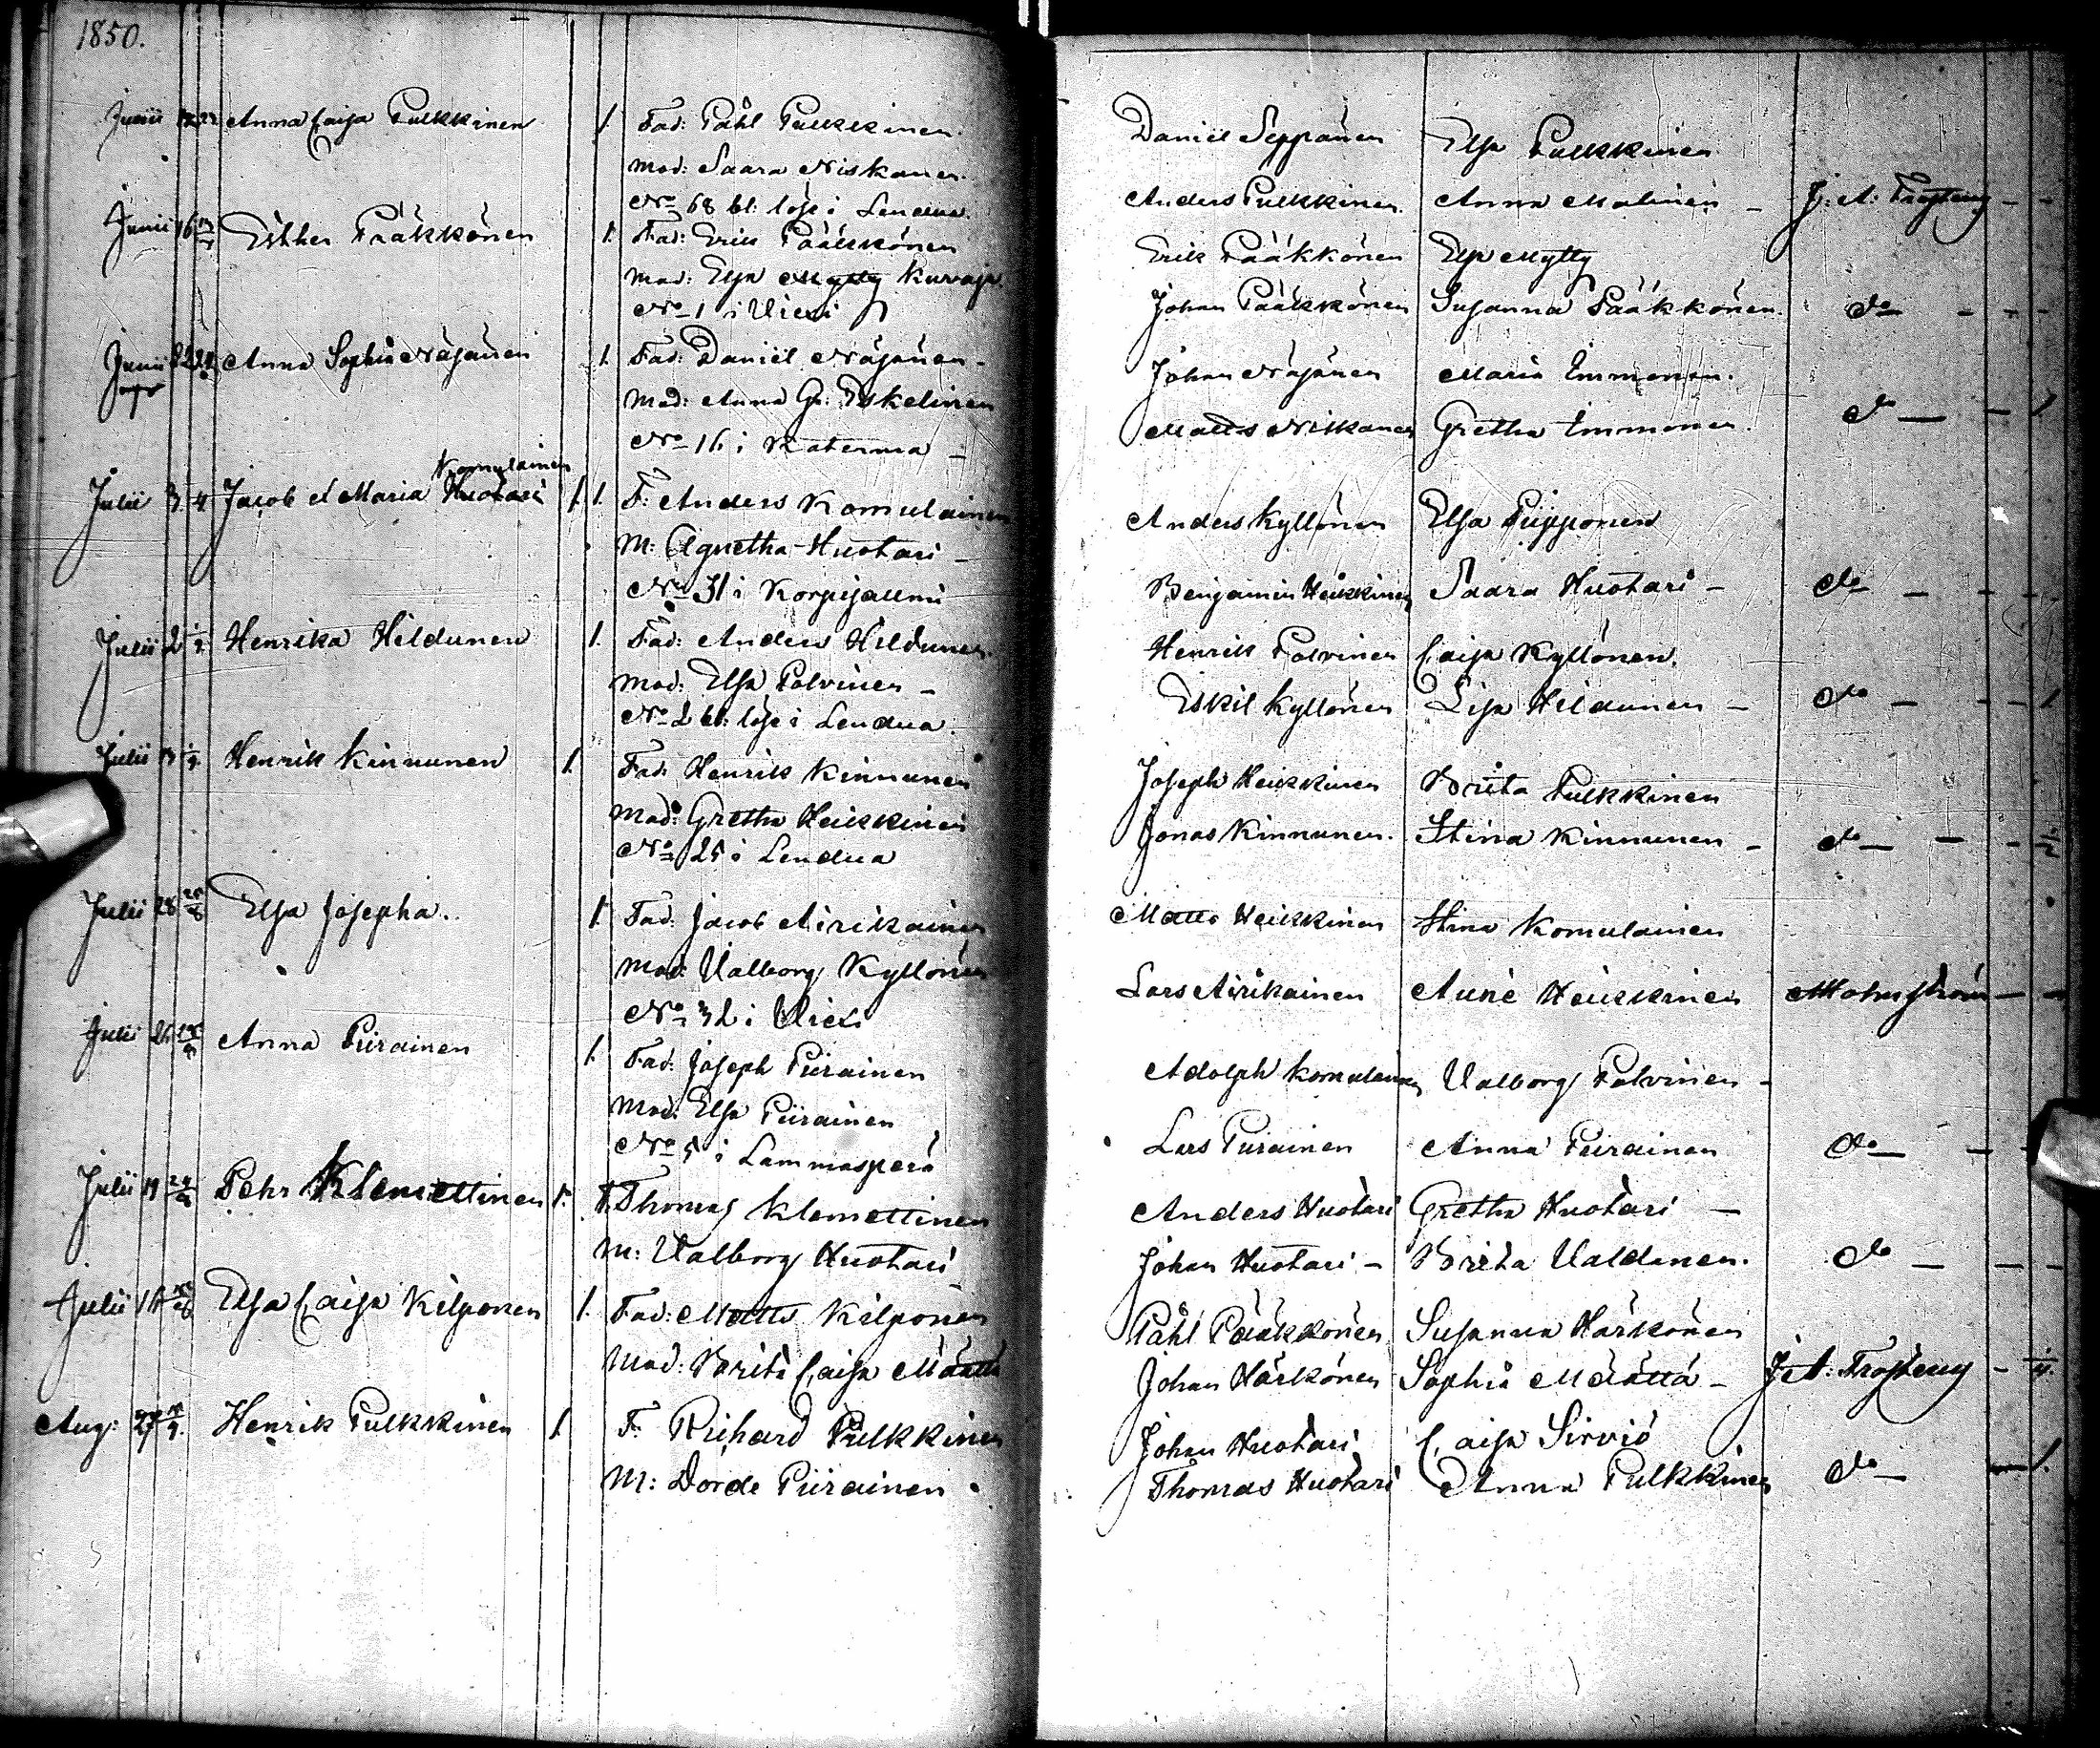 1850.
Junii Anna Caisa Pulkkinen 1. Fad: Påhl Pulkkinen.
Mod: Saara Niskanen.
No 68 bl: löse i Lendua.
Junii 16 Esther Pääkkönen 1. Fad: Erik Pääkkönen
Mod: Elsa Mylly Kuvaja
No 1 i Vieki
Junii Anna Sophia Näjänen 1. Fad: Daniel Näjänen
Mod: Anna Gr: Eskelinen
No 16 i Katerma
Komulainen
Julii 3 4 Jacob et Maria Huotari 1. 1. F: Anders Komulainen
M: Agnetha Huotari
No 31 i Korpisalmi
Julii 2 Henrika Hildunen 1. Fad: Anders Hildunen.
Mod: Elsa Polvinen
No 2 bl: löse i Lendua.
Julii Henrik Kinnunen 1. Fad: Henrik Kinnunen
Mod: Gretha Heikkinen
No 25 i Lendua
Julii 28 Elsa Josepha. 1. Fad: Jacob Airikainen
Mod: Valborg Kyllönen
No 32 i Vieki
Julii Anna Piirainen 1. Fad: Joseph Piirainen
Mod: Elsa Piirainen
No 5 i Lammasperä
Julii 19 Pehr Klemettinen 1. F. Thomas Klemettinen
M: Valborg Huotari
Julii Elsa Caisa Kilponen 1. Fad: Matts Kilponen
Mod: Brita Caisa Määttä
Aug: 27 Henrik Pulkkinen 1. F. Richard Pulkkinen
M: Dorde Piirainen
Daniel Seppänen Elsa Pulkkinen
Anders Pulkkinen. Anna Malinen J: A: Frosterus
Erik Pääkkönen Elsa Mylly
Johan Pääkkönen Susanna Pääkkönen. do
Johan Näjänen Maria Immonen.
Matts Niskanen Gretha Immonen. do
Anders Kyllönen Elsa Piipponen
Benjamin Heikkinen Saara Huotari do
Henrik Polvinen Caisa Kyllönen.
Eskil Kyllönen Lisa Hildunen do
Joseph Heikkinen Brita Pulkkinen
Jonas Kinnunen. Stina Kinnunen do
Matts Heikkinen Stina Komulainen
Lars Airikainen Heikkinen Holmström
Adolph Komulainen Valborg Polvinen
Lars Piirainen Anna Piirainen do
Anders Huotari Gretha Huotari
Johan Huotari Brita Valdanen. do
Påhl Pääkkönen Susanna Härkönen
Johan Härkönen Sophia Määttä J: A: Frosterus
Johan Huotari Caisa Sirviö
Thomas Huotari Anna Pulkkinen do